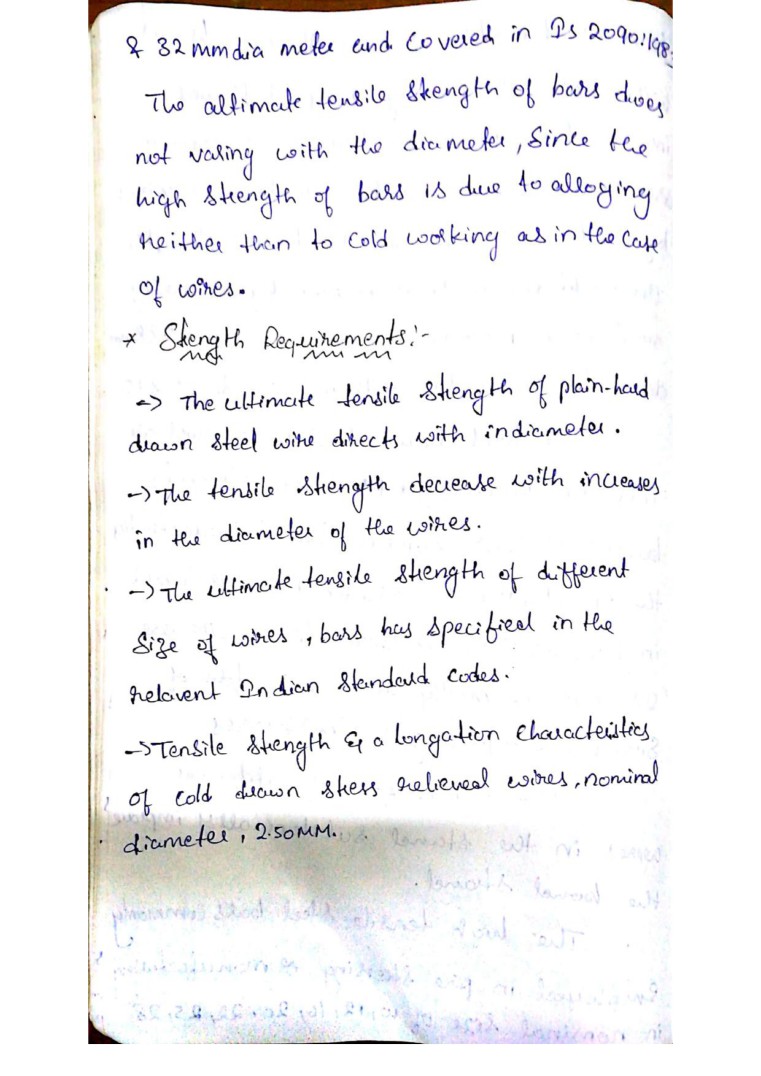 & 32 mm dia meter and covered in Is 2090:198
The altimate tensile Stength of bars does
not vasing with the diameter, Since the
high Stength of bars is due to alloying
neither than to Cold working as in the Case
of wires.
* Stength Requirements:-
=> The ultimate tensile Strength of plain-hard
drawn Steel wire directs with indiameter.
-> The tensile Strength decrease with increases
in the diameter of the wires.
-> The ultimate tensile strength of different
Size of wires, bars has specified in the
relavent Indian Standard Codes.
-> Tensile Strength & a longation Characteristics
of cold drawn stress relieved wires, nominal
diameter, 2.50MM.